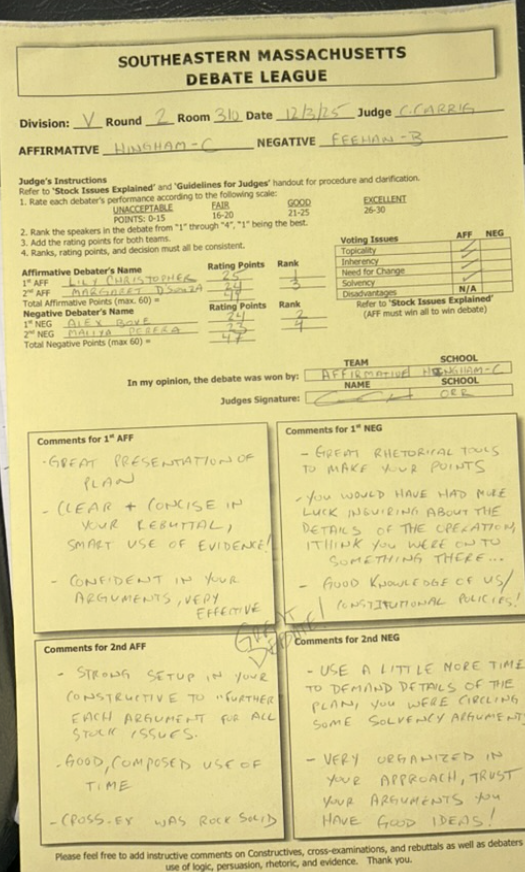 SOUTHEASTERN MASSACHUSETTS
DEBATE LEAGUE
Division: V Round 2 Room 310 Date 12/3/25 Judge C. CARRIG
AFFIRMATIVE HINGHAM-C NEGATIVE FEEHAN-B
Judge's Instructions
Refer to 'Stock Issues Explained' and 'Guidelines for Judges' handout for procedure and clarification.
1. Rate each debater's performance according to the following scale:
UNACCEPTABLE FAIR GOOD EXCELLENT
POINTS: 0-15 16-20 21-25 26-30
2. Rank the speakers in the debate from "1" through "4", "1" being the best.
3. Add the rating points for both teams.
4. Ranks, rating points, and decision must all be consistent.
Voting Issues AFF NEG
Topicality ✓
Inherency ✓
Need for Change ✓
Solvency ✓
Disadvantages N/A
Refer to 'Stock Issues Explained'
(AFF must win all to win debate)
Affirmative Debater's Name Rating Points Rank
1st AFF LILY CHRISTOPHER 25 1
2nd AFF MARGARET DSOUZA 24 3
Total Affirmative Points (max. 60) = 49
Negative Debater's Name Rating Points Rank
1st NEG ALEX BOVE 24 2
2nd NEG MALIYA PERERA 23 4
Total Negative Points (max 60) = 47
TEAM SCHOOL
In my opinion, the debate was won by: AFFIRMATIVE HINGHAM-C
NAME SCHOOL
Judges Signature: ORR
Comments for 1st AFF
- GREAT PRESENTATION OF
PLAN
- CLEAR + CONCISE IN
YOUR REBUTTAL,
SMART USE OF EVIDENCE!
- CONFIDENT IN YOUR
ARGUMENTS, VERY
EFFECTIVE
Comments for 1st NEG
- GREAT RHETORICAL TOOLS
TO MAKE YOUR POINTS
- YOU WOULD HAVE HAD MORE
LUCK INQUIRING ABOUT THE
DETAILS OF THE OPERATION,
I THINK YOU WERE ON TO
SOMETHING THERE...
- GOOD KNOWLEDGE OF US/
CONSTITUTIONAL POLICIES!
GREAT
DEBATE!
Comments for 2nd AFF
- STRONG SETUP IN YOUR
CONSTRUCTIVE TO "FURTHER
EACH ARGUMENT FOR ALL
STOCK ISSUES.
- GOOD, COMPOSED USE OF
TIME
- CROSS-EX WAS ROCK SOLID
Comments for 2nd NEG
- USE A LITTLE MORE TIME
TO DEMAND DETAILS OF THE
PLAN, YOU WERE CIRCLING
SOME SOLVENCY ARGUMENTS
- VERY ORGANIZED IN
YOUR APPROACH, TRUST
YOUR ARGUMENTS YOU
HAVE GOOD IDEAS!
Please feel free to add instructive comments on Constructives, cross-examinations, and rebuttals as well as debaters
use of logic, persuasion, rhetoric, and evidence. Thank you.